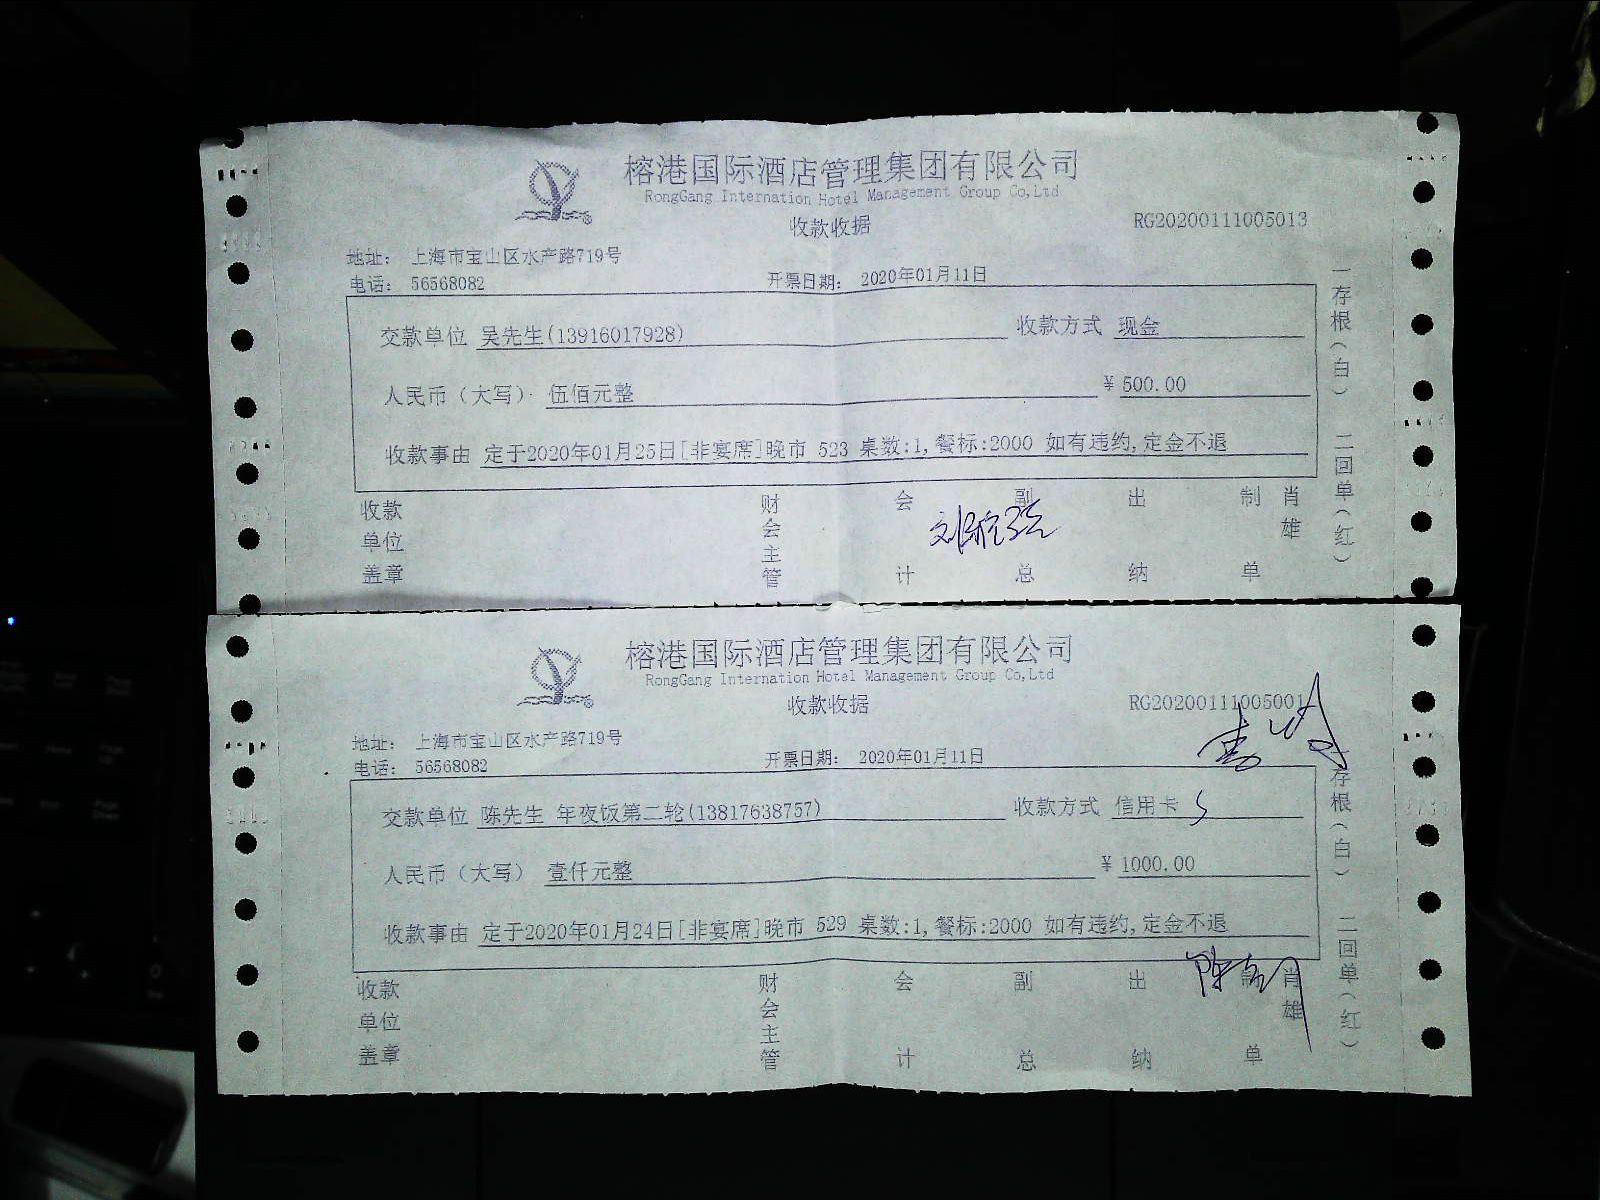 榕港国际酒店管理集团有限公司
RongGang Internation Hotel Management Group Co,Ltd
收款收据
RG20200111005013
地址： 上海市宝山区水产路719号
电话： 56568082
开票日期： 2020年01月11日
交款单位 吴先生(13916017928)
收款方式 现金
人民币（大写） 伍佰元整
¥ 500.00
收款事由 定于2020年01月25日[非宴席]晚市 523 桌数:1,餐标:2000 如有违约,定金不退
收款单位盖章
财会主管
会计
副总
出纳
制单
肖雄
一存根（白） 二回单（红）
榕港国际酒店管理集团有限公司
RongGang Internation Hotel Management Group Co,Ltd
收款收据
RG20200111005001
地址： 上海市宝山区水产路719号
电话： 56568082
开票日期： 2020年01月11日
交款单位 陈先生 年夜饭第二轮(13817638757)
收款方式 信用卡
人民币（大写） 壹仟元整
¥ 1000.00
收款事由 定于2020年01月24日[非宴席]晚市 529 桌数:1,餐标:2000 如有违约,定金不退
收款单位盖章
财会主管
会计
副总
出纳
制单
肖雄
存根（白） 二回单（红）